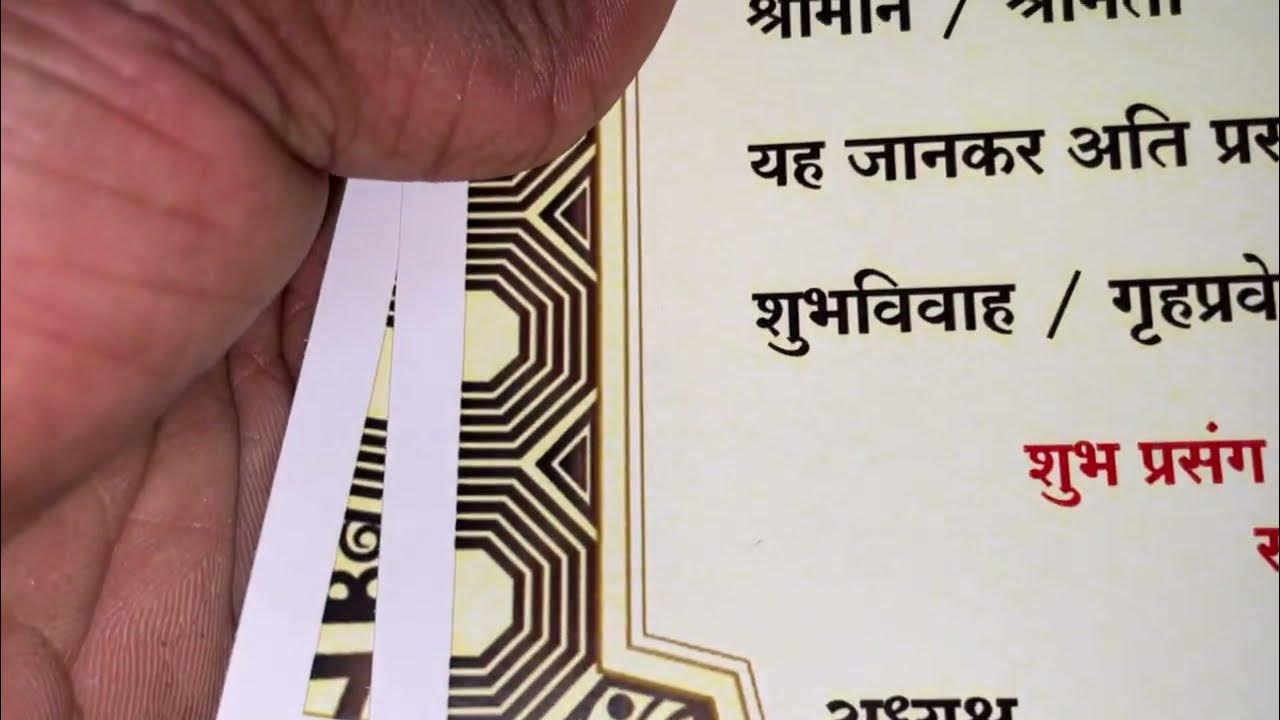 श्रीमान / श्रीमती
यह जानकर अति
शुभविवाह / गृहप्रवे
शुभ प्रसंग
अध्यक्ष